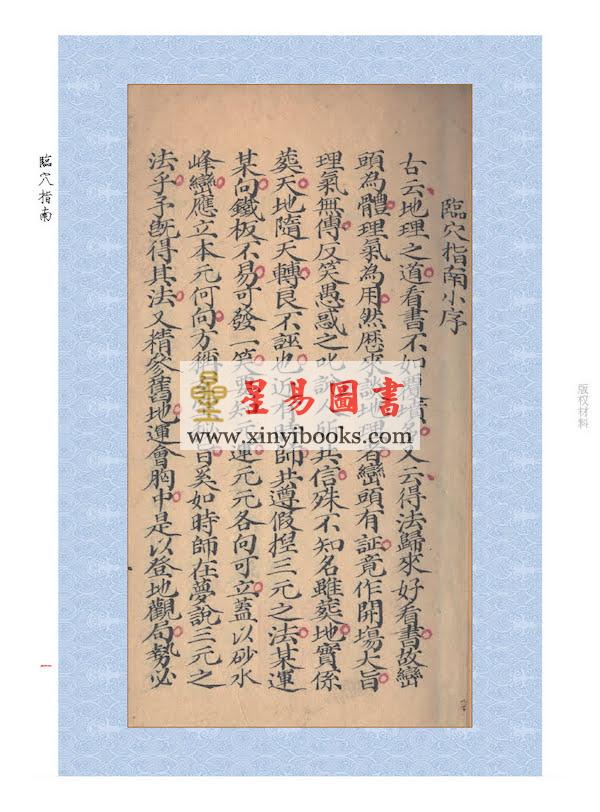 臨穴指南小序
古云地理之道看書不如覆墳名又云得法歸來好看書故巒
頭為體理氣為用然歷來談地理者巒頭有証竟作開場大旨
理氣無傳反笑愚惑之此說人所共信殊不知名雖塟地實係
塟天地隨天轉良不誣也近有時師共遵假揑三元之法某運
某向鐵板不易可發一笑要知元運元元各向可立蓋以砂水
峰巒應立本元何向方稱秘旨奚如時師在夢說三元之
法乎予旣得其法又精參舊地運會胸中是以登地觀局勢必
臨穴指南
一
版权材料
星易圖書
www.xinyibooks.com